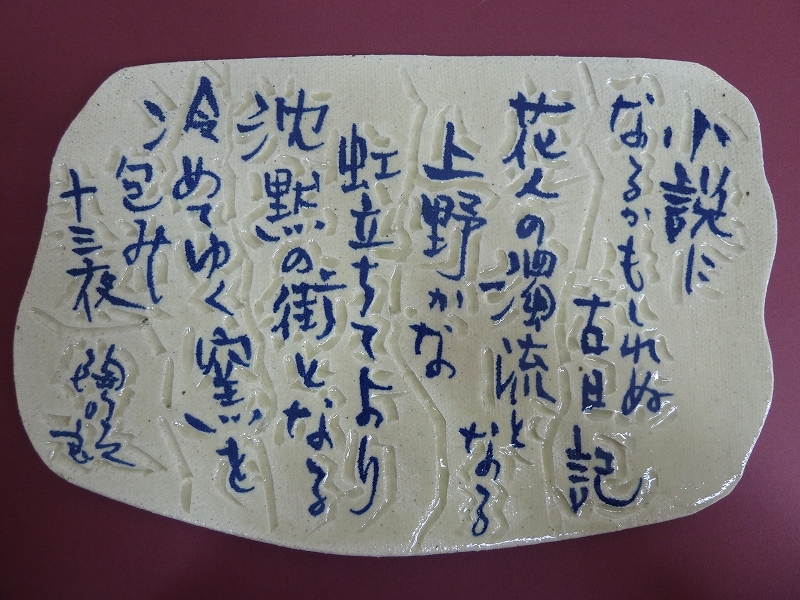 小説に
なるかもしれぬ
古日記
花人の濁流と
なる
上野かな
虹立ちてより
沈黙の街となる
冷めてゆく窯を
包み
十三夜